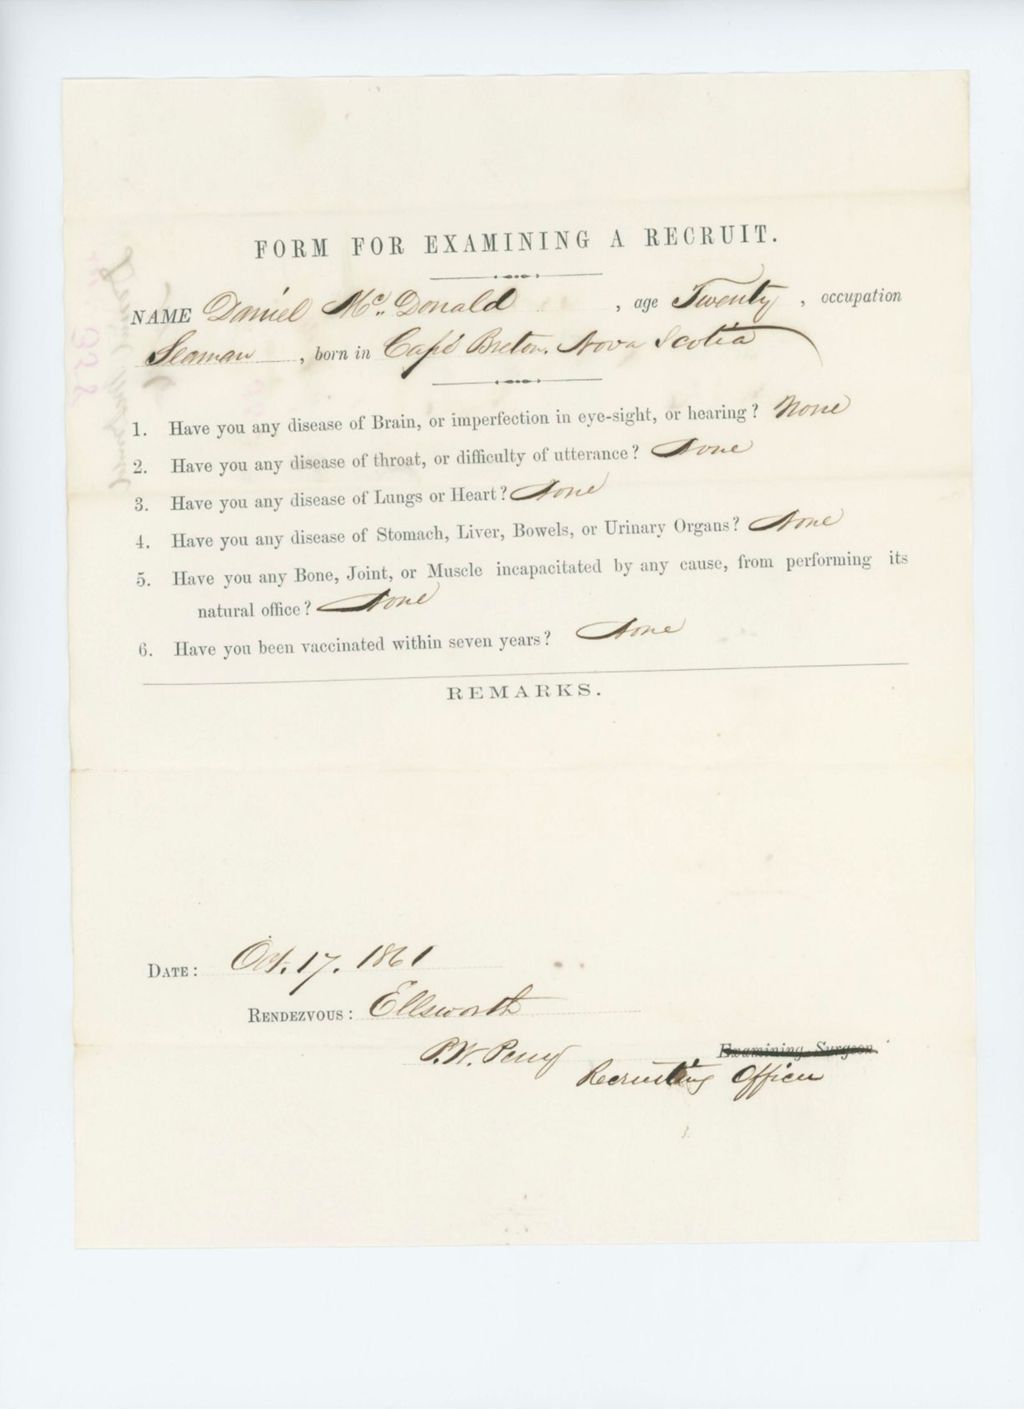 FORM FOR EXAMINING A RECRUIT.
NAME Daniel McDonald , age Twenty , occupation
Seaman , born in Cape Breton, Nova Scotia
1. Have you any disease of Brain, or imperfection in eye-sight, or hearing? None
2. Have you any disease of throat, or difficulty of utterance? None
3. Have you any disease of Lungs or Heart? None
4. Have you any disease of Stomach, Liver, Bowels, or Urinary Organs? None
5. Have you any Bone, Joint, or Muscle incapacitated by any cause, from performing its
natural office? None
6. Have you been vaccinated within seven years? None
REMARKS.
DATE: Oct. 17. 1861
RENDEZVOUS: Ellsworth
P.W. Perry Examining Surgeon.
Recruiting Officer